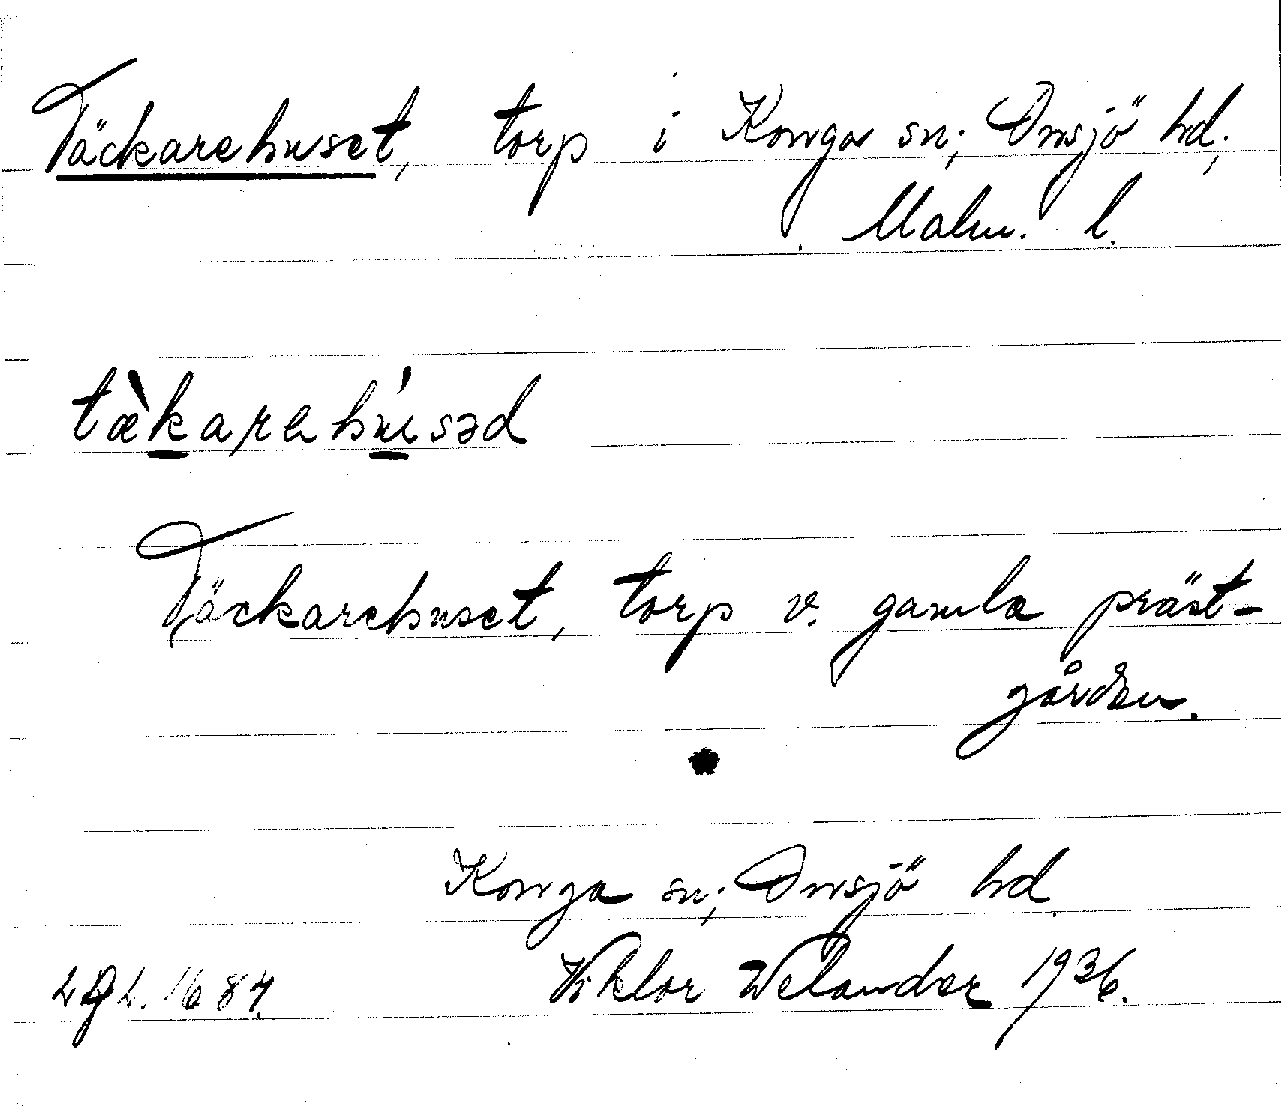 Täckarehuset, torp i Konga sn; Onsjö hd;
Malm. l.
tæ̀karehúsəd
Täckarehuset, torp v. gamla präst-
gården.
Konga sn; Onsjö hd.
Viktor Welander 1936.